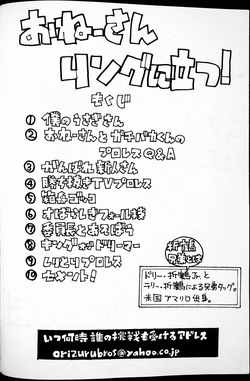 おねーさん
リングに立つ！
もくじ
① 僕のうさぎさん
② おねーさんとガチバカくんの
プロレスQ&A
③ がんばれ新人さん
④ 勝手書きTVプロレス
⑤
⑥ オバケしきフォール球
⑦ 委員長とあそぼう
⑧ キングオブドリーマー
⑨ しりとりプロレス
⑩ セメント！
折鶴
兄弟とは
ドリー・折鶴Jr.と
ラリー・折鶴による兄弟タッグ。
米国アマリロ出身。
いつ何時誰の挑戦も受けるアドレス
orizurubros@yahoo.co.jp